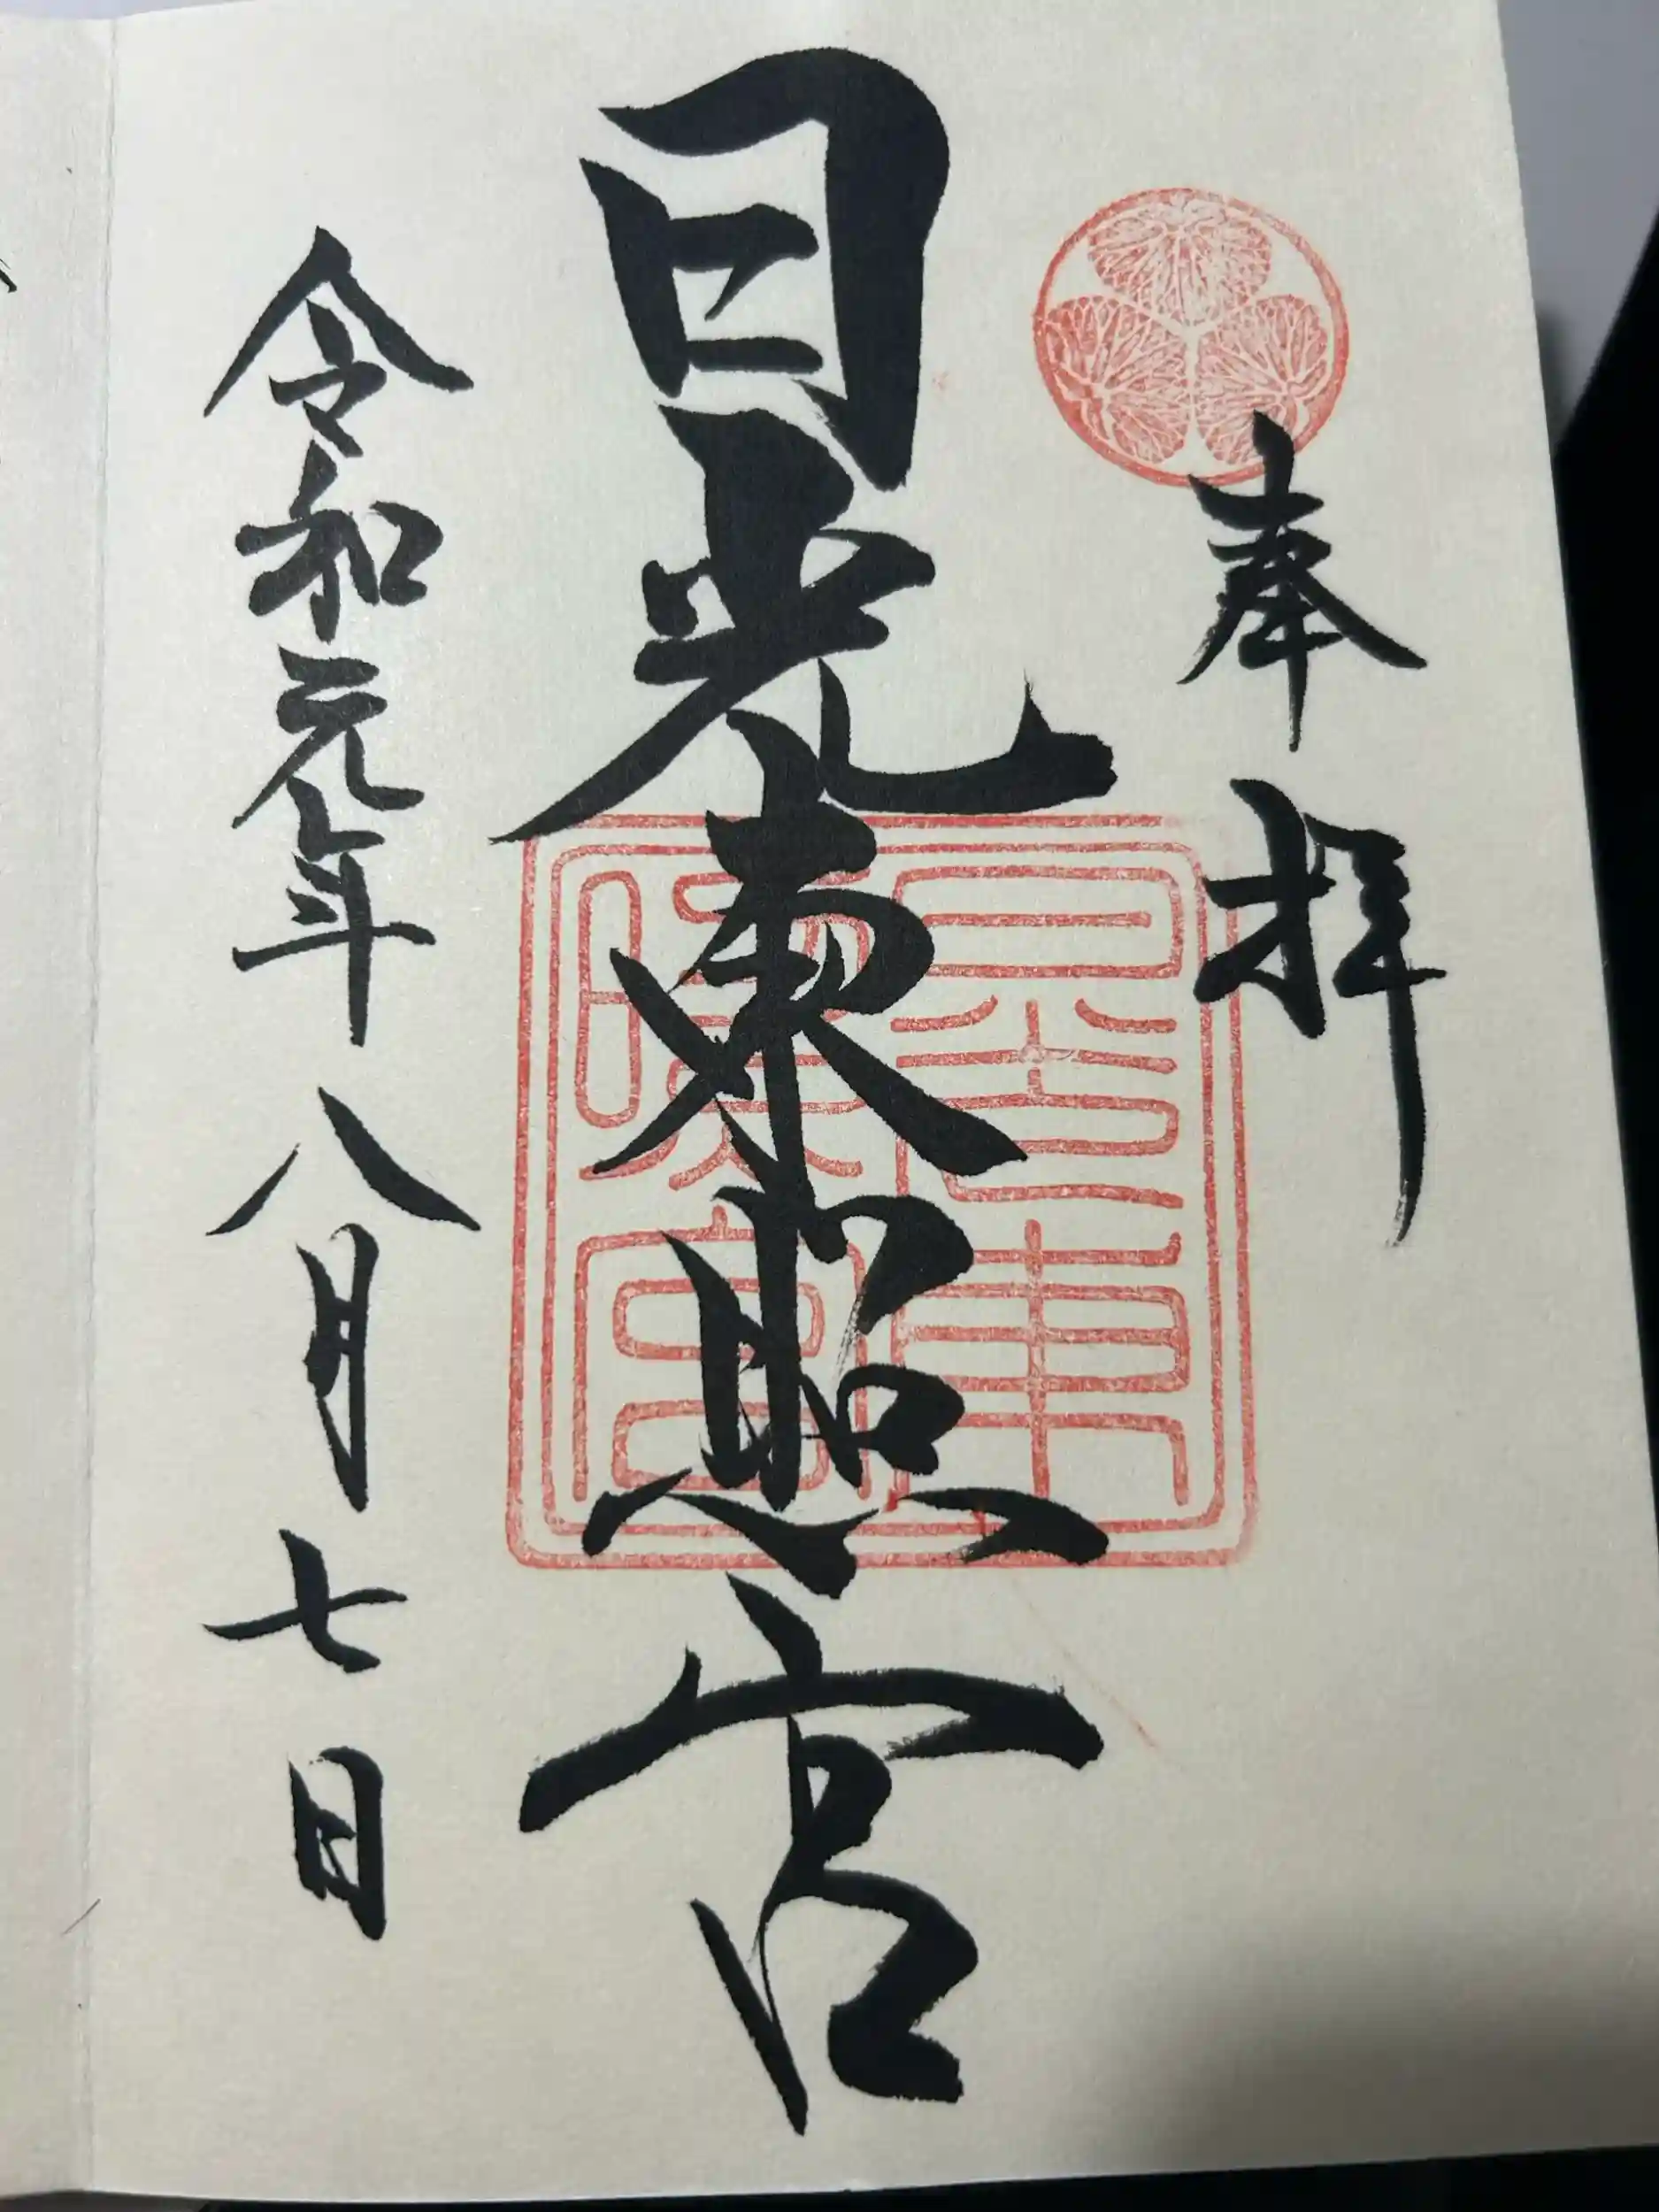 奉拝
日光東照宮
日光東照宮
令和元年八月七日